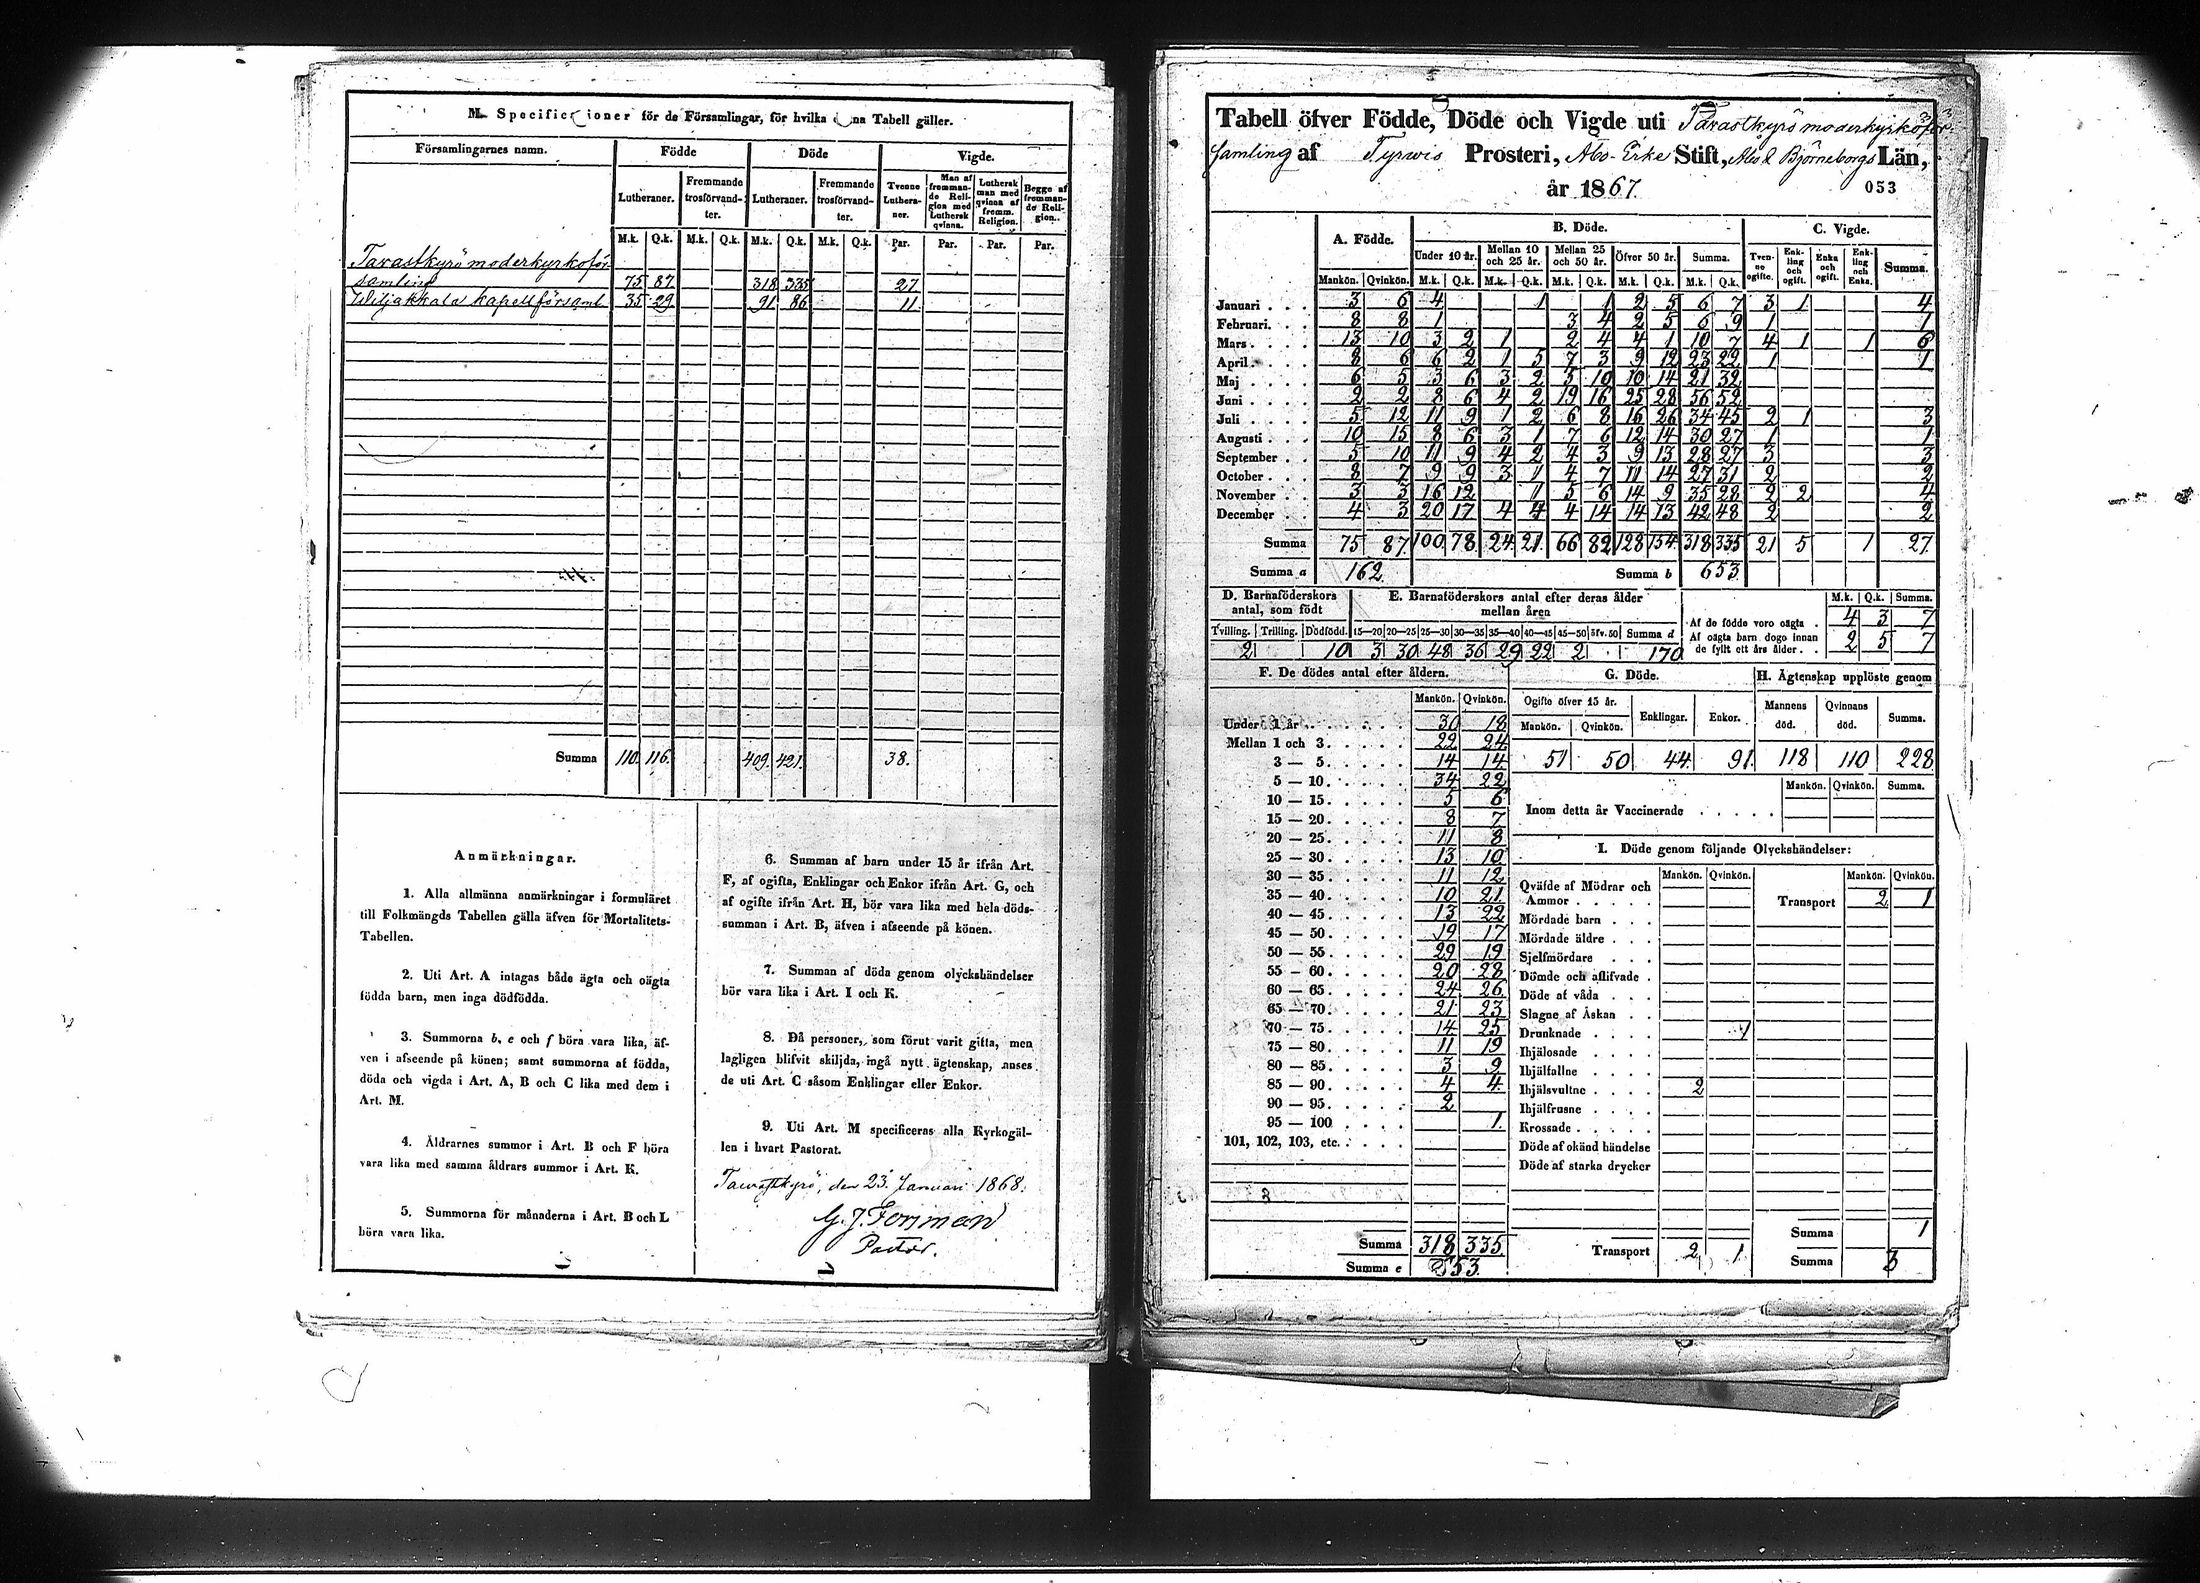 M. Specificationer för de Församlingar, för hvilka denna Tabell gäller.
Församlingarnes namn. Födde Döde Vigde.
Lutheraner. Fremmande trosförvandter. Lutheraner. Fremmande trosförvandter. Tvenne Lutheraner. Man af fremmande Religion med Luthersk qvinna. Luthersk man med qvinna af fremm. Religion. Begge af fremmande Religion.
M.k. Q.k. M.k. Q.k. M.k. Q.k. M.k. Q.k. Par. Par. Par. Par.
Tavastkyrö moderkyrkoför-
samling 75 87 318 335 27
Wiljakkala kapellförsaml 35 29 91 86 11
Summa 110. 116. 409. 421. 38.
Anmärkningar.
1. Alla allmänna anmärkningar i formuläret
till Folkmängds Tabellen gälla äfven för Mortalitets-
Tabellen.
2. Uti Art. A intagas både ägta och oägta
födda barn, men inga dödfödda.
3. Summorna b, e och f böra vara lika, äf-
ven i afseende på könen; samt summorna af födda,
döda och vigda i Art. A, B och C lika med dem i
Art. M.
4. Åldrarnes summor i Art. B och F böra
vara lika med samma åldrars summor i Art. K.
5. Summorna för månaderna i Art. B och L
böra vara lika.
6. Summan af barn under 15 år ifrån Art.
F, af ogifta, Enklingar och Enkor ifrån Art. G, och
af ogifte ifrån Art. H, bör vara lika med hela döds-
summan i Art. B, äfven i afseende på könen.
7. Summan af döda genom olyckshändelser
bör vara lika i Art. I och K.
8. Då personer, som förut varit gifta, men
lagligen blifvit skiljda, ingå nytt ägtenskap, anses
de uti Art. C såsom Enklingar eller Enkor.
9. Uti Art. M specificeras alla Kyrkogäl-
len i hvart Pastorat.
Tawastkyrö, den 23 Januari 1868.
G. J. Forsman
Pastor.
Tabell öfver Födde, Döde och Vigde uti Tavastkyrö moderkyrkoför-
samling af Tyrwis Prosteri, Abo-Erke Stift, Abo & Björneborgs Län,
år 1867. 053
A. Födde. B. Döde. C. Vigde.
Under 10 år. Mellan 10 och 25 år. Mellan 25 och 50 år. Öfver 50 år. Summa. Tvenne ogifte. Enkling och ogift. Enka och ogift. Enkling och Enka. Summa.
Mankön. Qvinkön. M.k. Q.k. M.k. Q.k. M.k. Q.k. M.k. Q.k. M.k. Q.k.
Januari 3 6 4 1 1 2 5 6 7 3 1 4
Februari 8 8 1 3 4 2 5 6 9 1 1
Mars 13 10 3 2 1 2 4 4 1 10 7 4 1 1 6
April 8 6 6 2 1 5 7 3 9 12 23 22 1 1
Maj 6 5 3 6 3 2 5 10 10 14 21 32
Juni 2 2 8 6 4 2 19 16 25 28 56 52
Juli 5 12 11 9 1 2 6 8 16 26 34 45 2 1 3
Augusti 10 15 8 6 3 1 7 6 12 14 30 27 1 1
September 5 10 11 9 4 2 4 3 9 13 28 27 3 3
October 8 7 9 9 3 1 4 7 11 14 27 31 2 2
November 3 3 16 12 1 5 6 14 9 35 28 2 2 4
December 4 3 20 17 4 4 4 14 14 13 42 48 2 2
Summa 75 87 100 78 24 21 66 82 128 154 318 335 21 5 1 27
Summa a 162 Summa b 653
D. Barnaföderskors antal, som födt
E. Barnaföderskors antal efter deras ålder mellan åren
M.k. Q.k. Summa.
Af de födde voro oägta 4 3 7
Af oägta barn dogo innan
de fyllt ett års ålder 2 5 7
Tvilling. Trilling. Dödfödd. 15—20 20—25 25—30 30—35 35—40 40—45 45—50 öfv. 50 Summa d
2 10 3 30 48 36 29 22 2 170
F. De dödes antal efter åldern.
Mankön. Qvinkön.
Under 1 år 30 18
Mellan 1 och 3 22 24
3 — 5 14 14
5 — 10 34 22
10 — 15 5 6
15 — 20 8 7
20 — 25 11 8
25 — 30 13 10
30 — 35 11 12
35 — 40 10 21
40 — 45 13 22
45 — 50 19 17
50 — 55 29 19
55 — 60 20 28
60 — 65 24 26
65 — 70 21 23
70 — 75 14 25
75 — 80 11 19
80 — 85 3 9
85 — 90 4 4
90 — 95 2
95 — 100 1
101, 102, 103, etc.
Summa 318 335
Summa e 653.
G. Döde. H. Ägtenskap upplöste genom
Ogifte öfver 15 år. Enklingar. Enkor. Mannens död. Qvinnans död. Summa.
Mankön. Qvinkön.
51 50 44 91 118 110 228
Mankön. Qvinkön. Summa.
Inom detta år Vaccinerade
I. Döde genom följande Olyckshändelser:
Mankön. Qvinkön. Mankön. Qvinkön.
Qväfde af Mödrar och
Ammor
Transport 2 1
Mördade barn
Mördade äldre
Sjelfmördare
Dömde och aflifvade
Döde af våda
Slagne af Åskan
Drunknade 1
Ihjälosade
Ihjälfallne
Ihjälsvultne 2
Ihjälfrusne
Krossade
Döde af okänd händelse
Döde af starka drycker
Summa 1
Transport 2 1 Summa 3